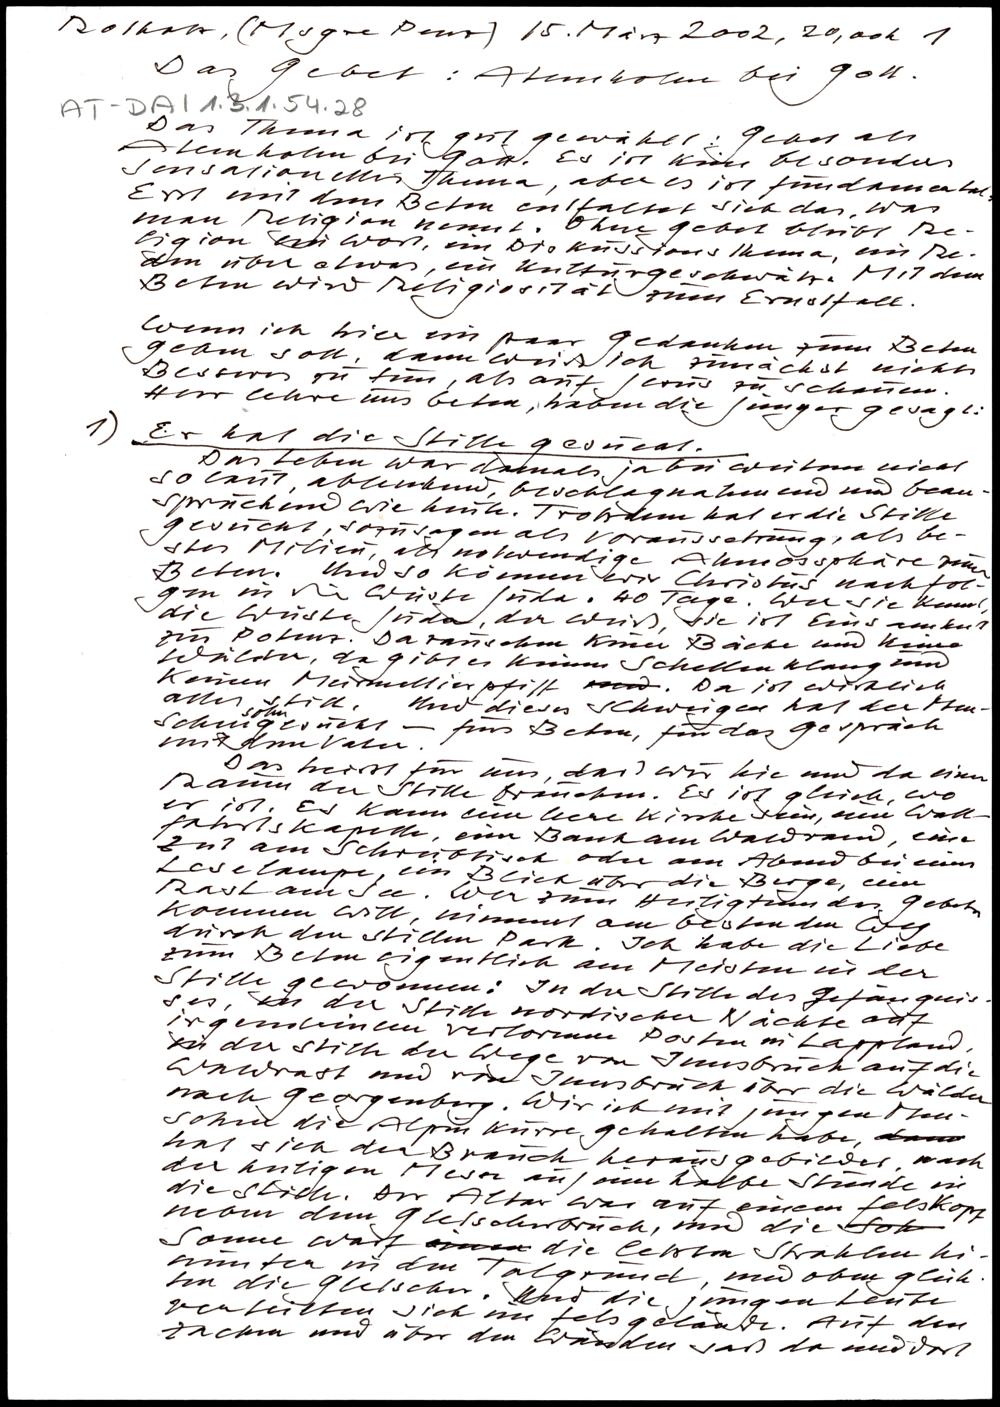 Rotholz, (Msgre Penz) 15. März 2002, 20,00h 1
Das Gebet: Atemholen bei Gott.
AT-DAI 1.3.1.54.28
Das Thema ist gut gewählt: Gebet als
Atemholen bei Gott. Es ist kein besonders
sensationelles Thema, aber es ist fundamental.
Erst mit dem Beten entfaltet sich das, was
man Religion nennt. Ohne Gebet bleibt Re-
ligion ein Wort, ein Diskussionsthema, ein Re-
den über etwas, ein Kulturgeschwätz. Mit dem
Beten wird Religiosität zum Ernstfall.
Wenn ich hier ein paar Gedanken zum Beten
geben soll, dann weiß ich zunächst nichts
Besseres zu tun, als auf Jesus zu schauen.
Herr lehre uns beten, haben die Jünger gesagt:
1) Er hat die Stille gesucht.
Das Leben war damals ja bei weitem nicht
so laut, ablenkend, beschlagnahmend und bean-
spruchend wie heute. Trotzdem hat er die Stille
gesucht, sozusagen als Voraussetzung, als be-
stes Milieu, als notwendige Atmossphäre zum
Beten. Und so können wir Christus nachfol-
gen in die Wüste Juda. 40 Tage. Wer sie kennt,
die Wüste Juda, der weiß, sie ist Einsamkeit
zur Potenz. Da rauschen keine Bäche und keine
Wälder, da gibt es keinen Schellenklang und
keinen Murmeltierpfiff und. Da ist wirklich
alles still. Und dieses Schweigen hat der Men-
schensohn gesucht – fürs Beten, für das Gespräch
mit dem Vater.
Das heisst für uns, daß wir hie und da einen
Raum der Stille brauchen. Es ist gleich, wo
er ist. Es kann eine leere Kirche sein, eine Wall-
fahrtskapelle, eine Bank am Waldrand, eine
Zeit am Schreibtisch oder am Abend bei einer
Leselampe, ein Blick über die Berge, eine
Rast am See. Wer zum Heiligtum des Gebets
kommen will, nimmt am besten den Weg
durch den stillen Park. Ich habe die Liebe
zum Beten eigentlich am Meisten in der
Stille gewonnen: In der Stille des Gefängnis-
ses, in der Stille nordischer Nächte auf
irgendeinem verlorenen Posten in Lappland,
in der Stille der Wege von Innsbruck auf die
Waldrast und von Innsbruck über die Wälder
nach Georgenberg. Wir ich mit jungen Men-
schen die Alpinkurse gehalten habe, dann
hat sich der Brauch herausgebildet, nach
der heiligen Messe auf eine halbe Stunde in
die Stille. Der Altar war auf einem Felskopf
neben dem Gletscherbruch, und die Son
Sonne warf einen die letzten Strahlen hi-
nunter in den Talgrund, und oben glüh-
ten die Gletscher. Und die jungen Leute
verteilten sich im Felsgelände. Auf den
Zacken und über den Wänden saß da und dort